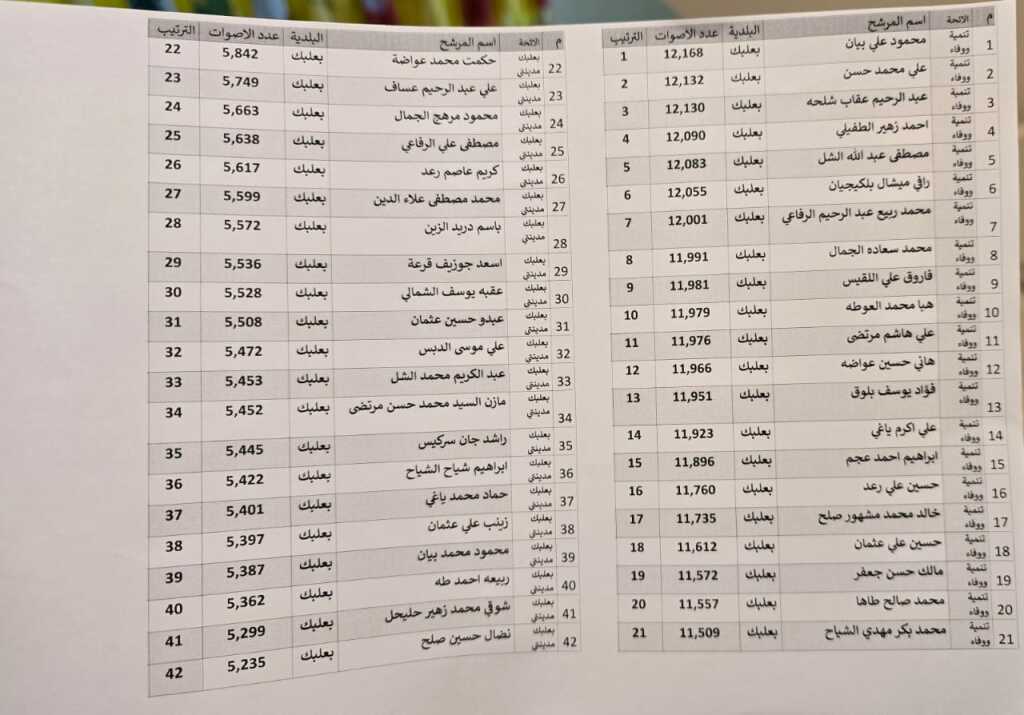 م اللائحة اسم المرشح البلدية عدد الاصوات الترتيب
1 تنمية ووفاء محمود علي بيان بعلبك 12,168 1
2 تنمية ووفاء علي محمد حسن بعلبك 12,132 2
3 تنمية ووفاء عبد الرحيم عقاب شلحه بعلبك 12,130 3
4 تنمية ووفاء احمد زهير الطفيلي بعلبك 12,090 4
5 تنمية ووفاء مصطفى عبد الله الشل بعلبك 12,083 5
6 تنمية ووفاء رافي ميشال بلكيجيان بعلبك 12,055 6
7 تنمية ووفاء محمد ربيع عبد الرحيم الرفاعي بعلبك 12,001 7
8 تنمية ووفاء محمد سعاده الجمال بعلبك 11,991 8
9 تنمية ووفاء فاروق علي اللقيس بعلبك 11,981 9
10 تنمية ووفاء هبا محمد العوطه بعلبك 11,979 10
11 تنمية ووفاء علي هاشم مرتضى بعلبك 11,976 11
12 تنمية ووفاء هاني حسين عواضه بعلبك 11,966 12
13 تنمية ووفاء فؤاد يوسف بلوق بعلبك 11,951 13
14 تنمية ووفاء علي اكرم ياغي بعلبك 11,923 14
15 تنمية ووفاء ابراهيم احمد عجم بعلبك 11,896 15
16 تنمية ووفاء حسين علي رعد بعلبك 11,760 16
17 تنمية ووفاء خالد محمد مشهور صلح بعلبك 11,735 17
18 تنمية ووفاء حسين علي عثمان بعلبك 11,612 18
19 تنمية ووفاء مالك حسن جعفر بعلبك 11,572 19
20 تنمية ووفاء محمد صالح طاها بعلبك 11,557 20
21 تنمية ووفاء محمد بكر مهدي الشياح بعلبك 11,509 21
م اللائحة اسم المرشح البلدية عدد الاصوات الترتيب
22 بعلبك مدينتي حكمت محمد عواضة بعلبك 5,842 22
23 بعلبك مدينتي علي عبد الرحيم عساف بعلبك 5,749 23
24 بعلبك مدينتي محمود مرهج الجمال بعلبك 5,663 24
25 بعلبك مدينتي مصطفى علي الرفاعي بعلبك 5,638 25
26 بعلبك مدينتي كريم عاصم رعد بعلبك 5,617 26
27 بعلبك مدينتي محمد مصطفى علاء الدين بعلبك 5,599 27
28 بعلبك مدينتي باسم دريد الزين بعلبك 5,572 28
29 بعلبك مدينتي اسعد جوزيف قرعة بعلبك 5,536 29
30 بعلبك مدينتي عقبه يوسف الشمالي بعلبك 5,528 30
31 بعلبك مدينتي عبدو حسين عثمان بعلبك 5,508 31
32 بعلبك مدينتي علي موسى الدبس بعلبك 5,472 32
33 بعلبك مدينتي عبد الكريم محمد الشل بعلبك 5,453 33
34 بعلبك مدينتي مازن السيد محمد حسن مرتضى بعلبك 5,452 34
35 بعلبك مدينتي راشد جان سركيس بعلبك 5,445 35
36 بعلبك مدينتي ابراهيم شياح الشياح بعلبك 5,422 36
37 بعلبك مدينتي حماد محمد ياغي بعلبك 5,401 37
38 بعلبك مدينتي زينب علي عثمان بعلبك 5,397 38
39 بعلبك مدينتي محمود محمد بيان بعلبك 5,387 39
40 بعلبك مدينتي ربيعه احمد طه بعلبك 5,362 40
41 بعلبك مدينتي شوقي محمد زهير حليحل بعلبك 5,299 41
42 بعلبك مدينتي نضال حسين صلح بعلبك 5,235 42